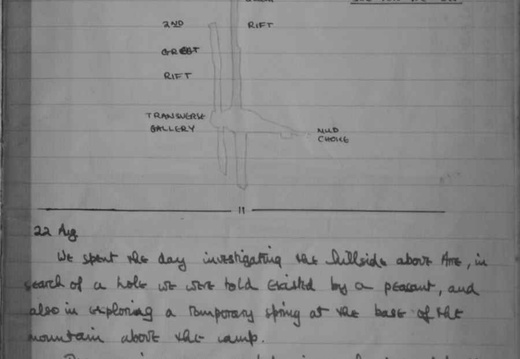 2ND RIFT
GREAT
RIFT
TRANSVERSE
GALLERY
MUD
CHOKE
11
22 Aug
We spent the day investigating the hillside above Are, in
search of a hole we were told existed by a peasant, and
also in exploring a temporary spring at the base of the
mountain above the camp.